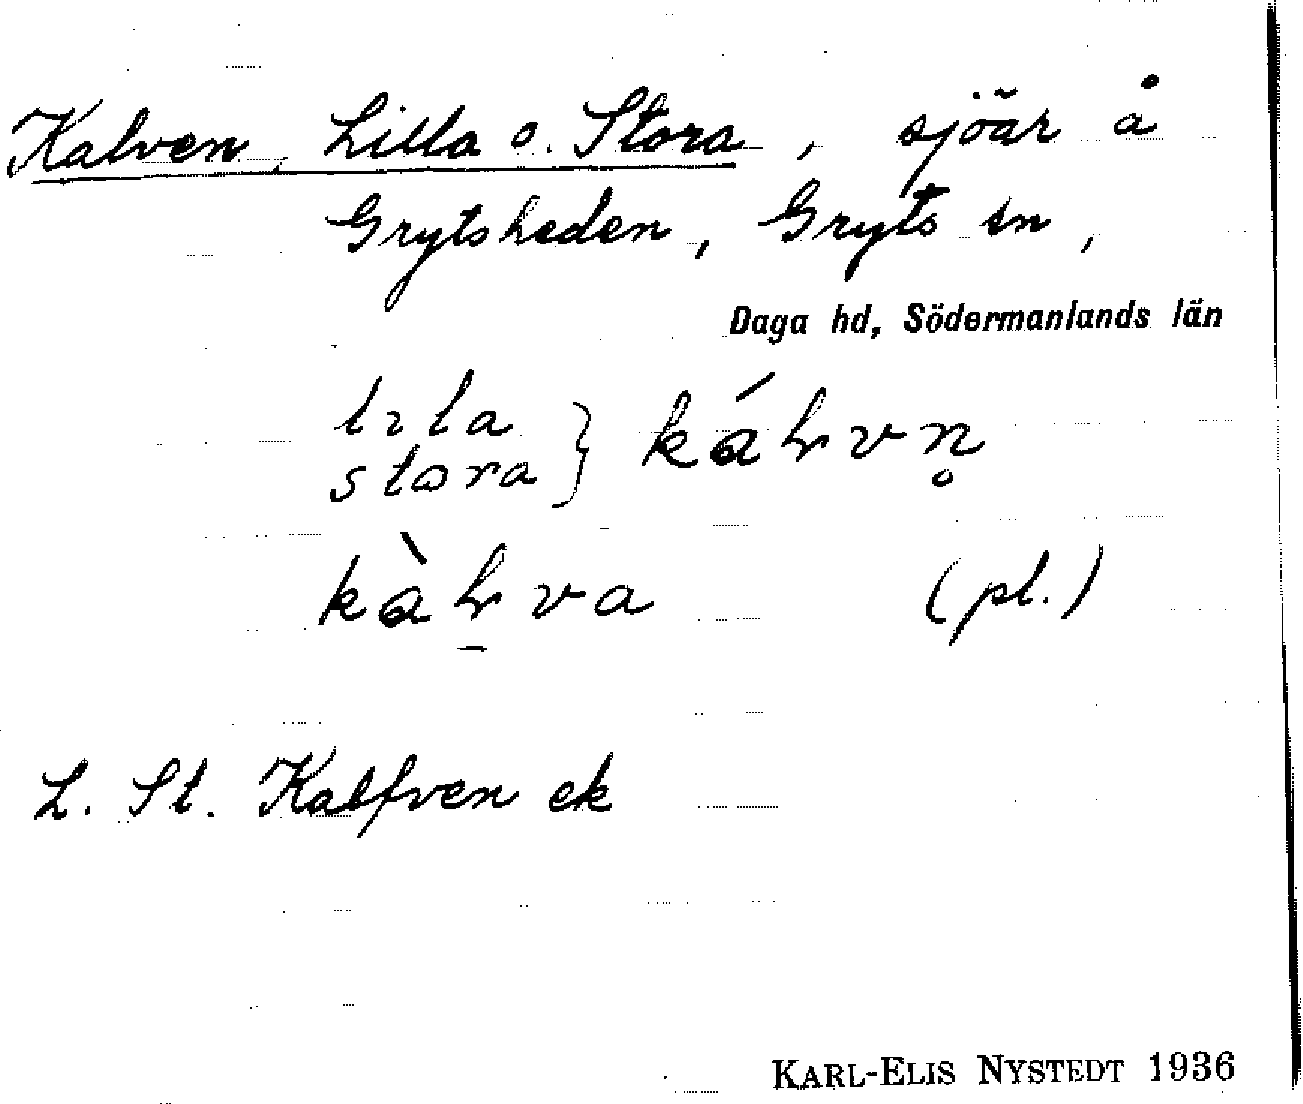 Kalven, Lilla o. Stora, sjöar å
Grytsheden, Gryts sn,
Daga hd, Södermanlands län
lɩla
stɷra } kálvn̥
kàlva (pl.)
L. St. Kalfven ek
KARL-ELIS NYSTEDT 1936